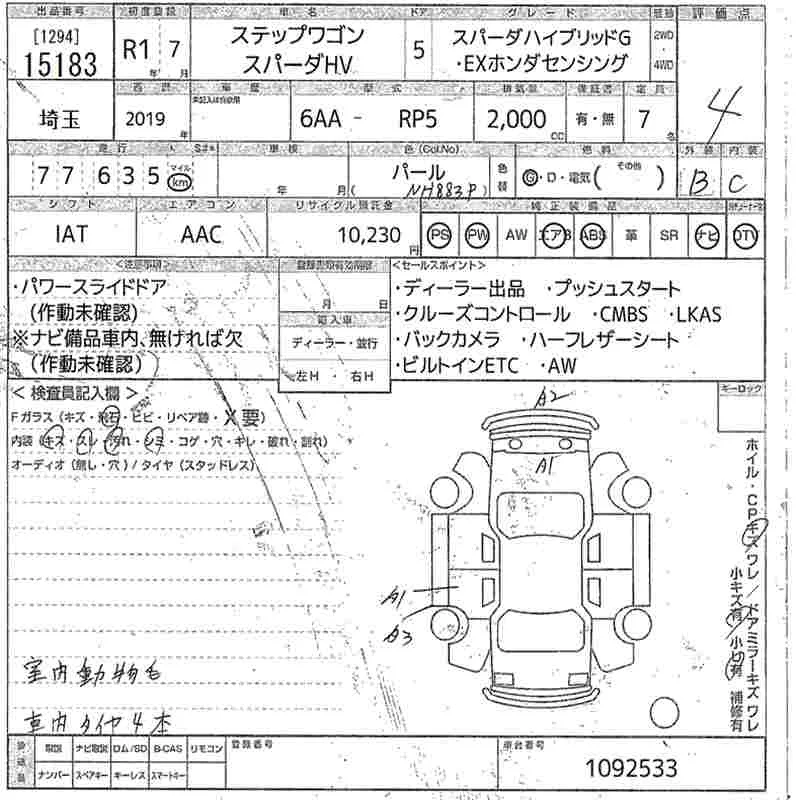 出品番号 初度登録 車名 ドア グレード 駆動 評価点
[1294]
15183
R1 年 7 月
ステップワゴン
スパーダHV
5
スパーダハイブリッドG
・EXホンダセンシング
2WD
・
4WD
4
埼玉
西暦 車歴 型式 排気量 保証書 定員
2019 年
未記入は自家用
6AA - RP5
2,000 cc
有・無
7 名
走行 車検 色(Col.No) 燃料 外装 内装
77 635 マイル km
年 月(
パール
NH883P)
色替
G・D・電気( その他 )
B C
シフト エアコン リサイクル預託金 純正装備品
IAT AAC 10,230 円
PS PW AW エアB ABS 革 SR ナビ DTV
<注意事項>
・パワースライドドア
(作動未確認)
※ナビ備品車内、無ければ欠
(作動未確認)
月 日
輸入車
ディーラー・並行
左H ・ 右H
<セールスポイント>
・ディーラー出品 ・プッシュスタート
・クルーズコントロール ・CMBS ・LKAS
・バックカメラ ・ハーフレザーシート
・ビルトインETC ・AW
<検査員記入欄>
Fガラス(キズ・飛石・ヒビ・リペア跡・X要)
内装(キズ・スレ・汚れ・シミ・コゲ・穴・キレ・破れ・割れ)
オーディオ(無し・穴)/タイヤ(スタッドレス)
室内動物毛
車内タイヤ4本
A2
A1
A1
A3
キーロック
ホイル・CPキズワレ/ドアミラーキズワレ
小キズ有/小凹有 補修有
後送品
取説 ナビ取説 ロム/SD B-CAS リモコン
ナンバー スペアキー キーレス スマートキー
登録番号
車台番号
1092533